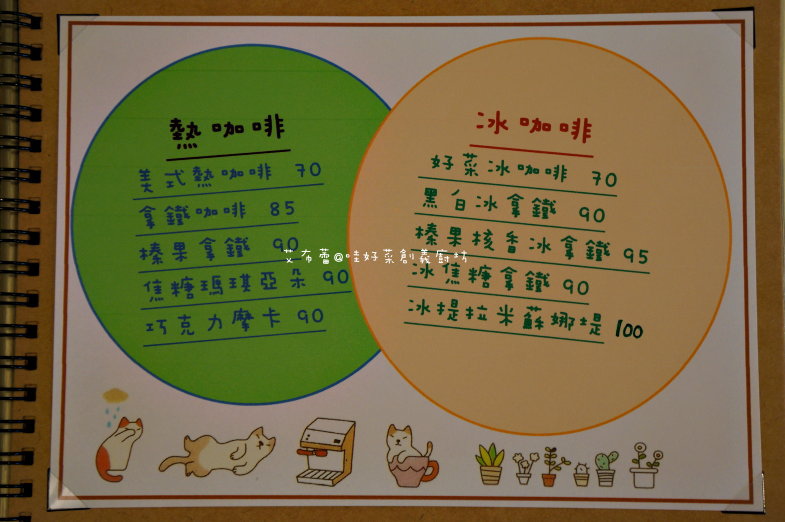 熱咖啡
美式熱咖啡 70
拿鐵咖啡 85
榛果拿鐵 90
焦糖瑪琪亞朵 90
巧克力摩卡 90
冰咖啡
好菜冰咖啡 70
黑白冰拿鐵 90
榛果核香冰拿鐵 95
冰焦糖拿鐵 90
冰提拉米蘇娜堤 100
艾布蕾@哇好菜創義廚坊